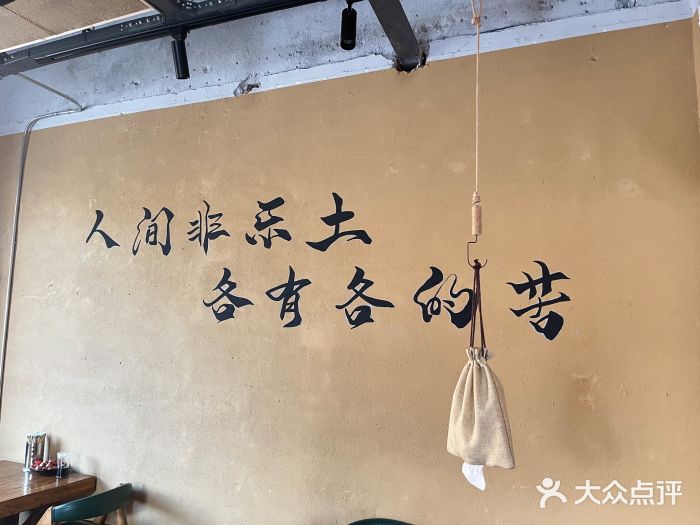 人间非乐土
各有各的苦
大众点评